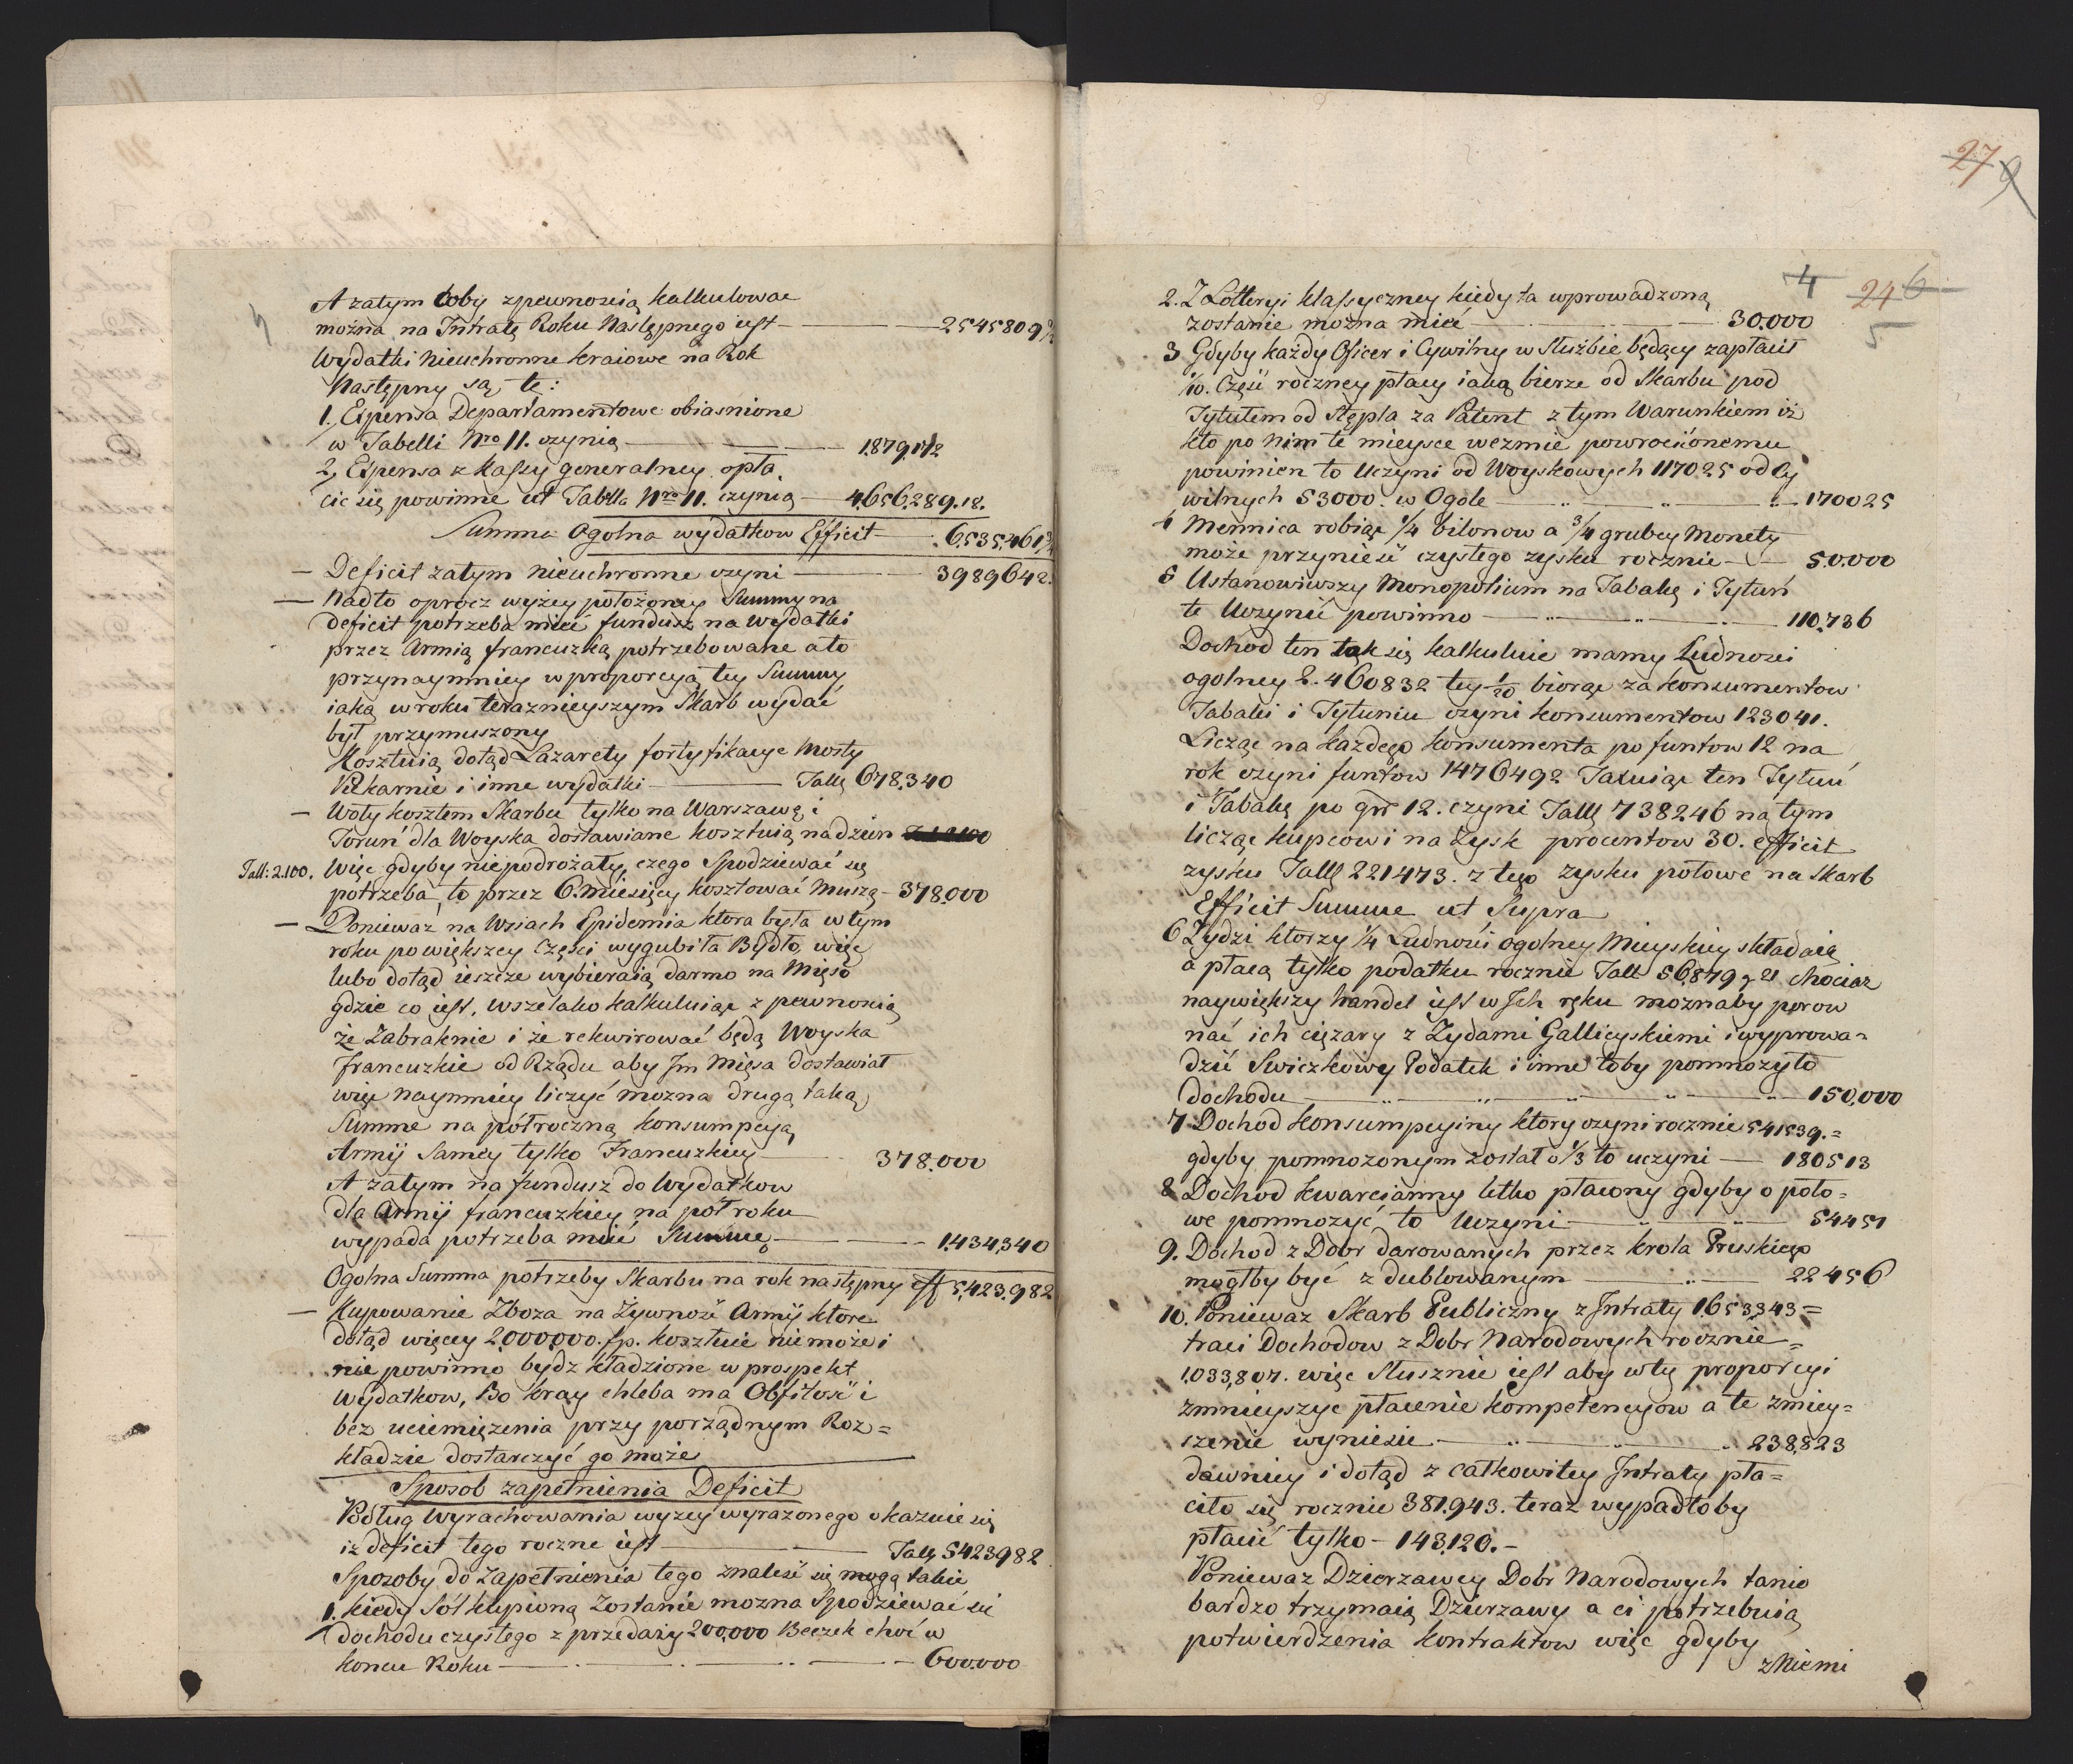 A zatym coby zpewnoscią kalkulowac
można na Intratę Roku Następnego iest — 2545809
Wydatki Nieuchronne kraiowe na Rok
Następny są te:
1. Expensa Departamentowe obiasnione
w Tabelli Nro 11. czynią — 1.879,172
2. Expensa z Kassy generalney opła
cic się powinne ut Tabella Nro 11. czynią — 4,656,289.18.
Summa Ogolna wydatkow Efficit — 6,535,461 2/3
— Deficit zatym nieuchronne czyni — 3989642.
— Nadto oprocz wyżey położoney Summy na
deficit potrzeba mieć fundusz na wydatki
przez Armią francuzką potrzebowane a to
przynaymniey w proporcyą tey Summy
iaką w roku terazniejszym Skarb wydać
był przymuszony
Kosztuią dotąd Lazarety fortyfikacye Mosty
Piekarnie i inne wydatki — Tall 678,340
— Woły kosztem Skarbu tylko na Warszawę i
Toruń dla Woyska dostawiane kosztuią na dzien
Tall: 2.100. Więc gdyby niepodrożały, czego Spodziewać się
potrzeba, to przez 6. Miesięcy kosztować Muszą — 378,000
— Ponieważ na Wsiach Epidemia ktora była w tym
roku po większey Części wygubiła Bydło, więc
lubo dotąd ieszcze wybieraią darmo na Mięso
gdzie co iest, wszelako kalkuluiąc z pewnoscią
że Zabraknie i że rekwirować będą Woyska
francuzkie od Rządu aby Im Mięsa dostawiał
więc naymniey liczyć mozna drugą taką
Summe na półroczną konsumpcyą
Armij Samey tylko Francuzkiey — 378.000
A zatym na fundusz do Wydatkow
dla Armij francuzkiey na poł roku
wypada potrzeba mieć Summę — 1,434,340
Ogolna Summa potrzeby Skarbu na rok następny eff 5,423,982
— Kupowanie Zboza na Żywność Armij ktore
dotąd więcey 2,000,000. fp. kosztuie nie może i
nie powinno bydz kładzione w prospekt
wydatkow, Bo kray chleba ma Obfitość i
bez uciemięzenia przy porządnym Roz=
kładzie dostarczyć go może
Sposob zapełnienia Deficit
Podług Wyrachowania wyzey wyrazonego okazuie się
iz deficit tego roczne iest — Tall 5423982
Sposoby do Zapełnienia tego znaleść się mogą takie
1. Kiedy Sól kupioną Zostanie mozna Spodziewać się
dochodu czystego z przedaży 200,000 Beczek choć w
koncu Roku — 600,000
27 9
4 24 6
5
2. Z Lotteryi klassyczney kiedy ta wprowadzoną
zostanie mozna mieć — 30.000
3 Gdyby każdy Oficer i Cywilny w Służbie będący zapłacił
1/10. Część roczney płacy iaką bierze od Skarbu pod
Tytułem od Stępla za Patent z tym Warunkiem iż
kto po Nim te mieysce wezmie powrocić onemu
powinien to Uczyni od Woyskowych 117025 od Cy
wilnych 53000. w Ogole — 170025
4 Mennica robiąc 1/4 bilonow a 3/4 grubey Monety
może przynieść czystego zysku rocznie — 50.000
5 Ustanowiwszy Monopolium na Tabakę i Tytuń
te Uczynić powinno — 110,736
Dochod ten tak się kalkuluie mamy Ludnosci
ogolney 2.460832 tey 1/20 biorąc za konsumentow
Tabaki i Tytuniu czyni konsumentow 123041.
Licząc na każdego konsumenta po funtow 12 na
rok czyni funtow 1476492 Taxuiąc ten Tytuń
i Tabakę po gr 12. czyni Tall 738246 na tym
licząc kupcowi na Zysk procentow 30. efficit
zysku Tall 221473. z tego zysku połowe na Skarb
Efficit Summe ut Supra
6 Żydzi ktorzy 1/4 Ludnosci ogolney Mieyskiey składaią
a płacą tylko podatku rocznie Tall 56,879 g 21 chociaz
naywiększy handel iest w Ich ręku moznaby porow
nać ich ciężary z Żydami Gallicyskiemi i wyprowa=
dzić Swieczkowy Podatek i inne toby pomnozyło
dochodu — 150,000
7 Dochod konsumpcyiny ktory czyni rocznie 541539.=
gdyby pomnozonym został o 1/3 to uczyni — 180513
8 Dochod kwarcianny letko płacony gdyby o poło=
we pomnozyć to Uczyni — 54451
9. Dochod z Dobr darowanych przez krola Pruskiego
mogłby być zdublowanym — 22456
10. Ponieważ Skarb Publiczny z Intraty 1,653,343=
traci Dochodow z Dobr Narodowych rocznie=
1,033,807. więc Słusznie iest aby w tey proporcyi
zmnieyszyc płacenie kompetencyow a te zmiey=
szenie wyniesie — 238,823
dawniey i dotąd z całkowitey Intraty pła=
ciło się rocznie 381.943. teraz wypadłoby
płacić tylko - 143,120.-
Ponieważ Dzierzawcy Dobr Narodowych tanio
bardzo trzymaią Dzierzawy a ci potrzebuią
potwierdzenia kontraktow więc gdyby
z Niemi